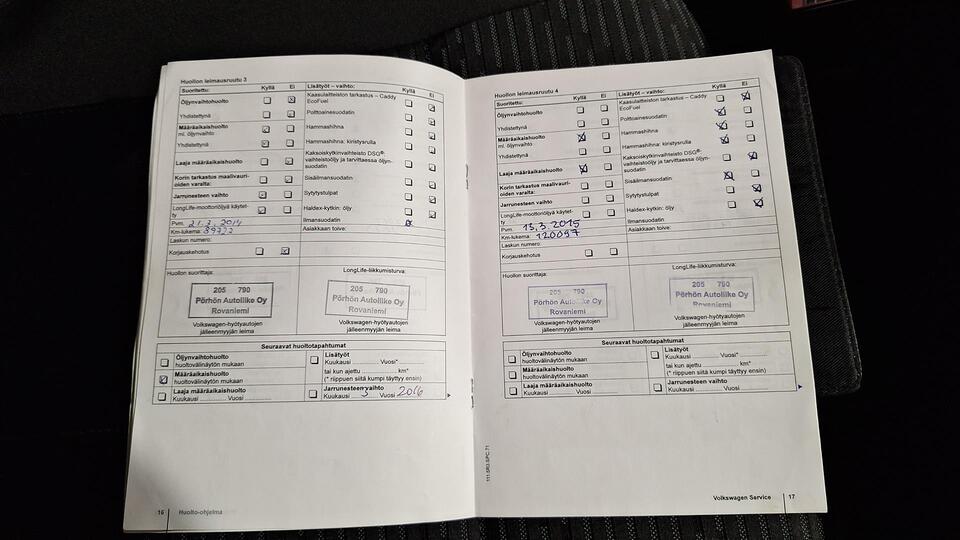 Huollon leimausruutu 3
Suoritettu: Kyllä Ei
Öljynvaihtohuolto
Yhdistettynä
Määräaikaishuolto
ml. öljynvaihto
Yhdistettynä
Laaja määräaikaishuolto
Korin tarkastus maalivauri-
oiden varalta:
Jarrunesteen vaihto
LongLife-moottoriöljyä käytet-
ty
Pvm. 21.3.2014
Km-lukema:
Laskun numero:
Korjauskehotus
Lisätyöt – vaihto: Kyllä Ei
Kaasulaitteiston tarkastus – Caddy
EcoFuel
Polttoainesuodatin
Hammashihna
Hammashihna: kiristysrulla
Kaksoiskytkinvaihteisto DSG®:
vaihteistoöljy ja tarvittaessa öljyn-
suodatin
Sisäilmansuodatin
Sytytystulpat
Haldex-kytkin: öljy
Ilmansuodatin
Asiakkaan toive:
Huollon suorittaja:
205 790
Pörhön Autoliike Oy
Rovaniemi
Volkswagen-hyötyautojen
jälleenmyyjän leima
LongLife-liikkumisturva:
205 790
Pörhön Autoliike Oy
Rovaniemi
Volkswagen-hyötyautojen
jälleenmyyjän leima
Seuraavat huoltotapahtumat
Öljynvaihtohuolto
huoltovälinäytön mukaan
Määräaikaishuolto
huoltovälinäytön mukaan
Laaja määräaikaishuolto
Kuukausi ........ Vuosi ........
Lisätyöt
Kuukausi ........ Vuosi*
tai kun ajettu ........ km*
(* riippuen siitä kumpi täyttyy ensin)
Jarrunesteenvaihto
Kuukausi 3 Vuosi 2016
16 Huolto-ohjelma
Huollon leimausruutu 4
Suoritettu: Kyllä Ei
Öljynvaihtohuolto
Yhdistettynä
Määräaikaishuolto
ml. öljynvaihto
Yhdistettynä
Laaja määräaikaishuolto
Korin tarkastus maalivauri-
oiden varalta:
Jarrunesteen vaihto
LongLife-moottoriöljyä käytet-
ty
Pvm. 13.3.2015
Km-lukema: 120097
Laskun numero:
Korjauskehotus
Lisätyöt – vaihto: Kyllä Ei
Kaasulaitteiston tarkastus – Caddy
EcoFuel
Polttoainesuodatin
Hammashihna
Hammashihna: kiristysrulla
Kaksoiskytkinvaihteisto DSG®:
vaihteistoöljy ja tarvittaessa öljyn-
suodatin
Sisäilmansuodatin
Sytytystulpat
Haldex-kytkin: öljy
Ilmansuodatin
Asiakkaan toive:
Huollon suorittaja:
205 790
Pörhön Autoliike Oy
Rovaniemi
Volkswagen-hyötyautojen
jälleenmyyjän leima
LongLife-liikkumisturva:
205 790
Pörhön Autoliike Oy
Rovaniemi
Volkswagen-hyötyautojen
jälleenmyyjän leima
Seuraavat huoltotapahtumat
Öljynvaihtohuolto
huoltovälinäytön mukaan
Määräaikaishuolto
huoltovälinäytön mukaan
Laaja määräaikaishuolto
Kuukausi ........ Vuosi ........
Lisätyöt
Kuukausi ........ Vuosi*
tai kun ajettu ........ km*
(* riippuen siitä kumpi täyttyy ensin)
Jarrunesteen vaihto
Kuukausi ........ Vuosi ........
111.5R3.SPC.71
Volkswagen Service 17